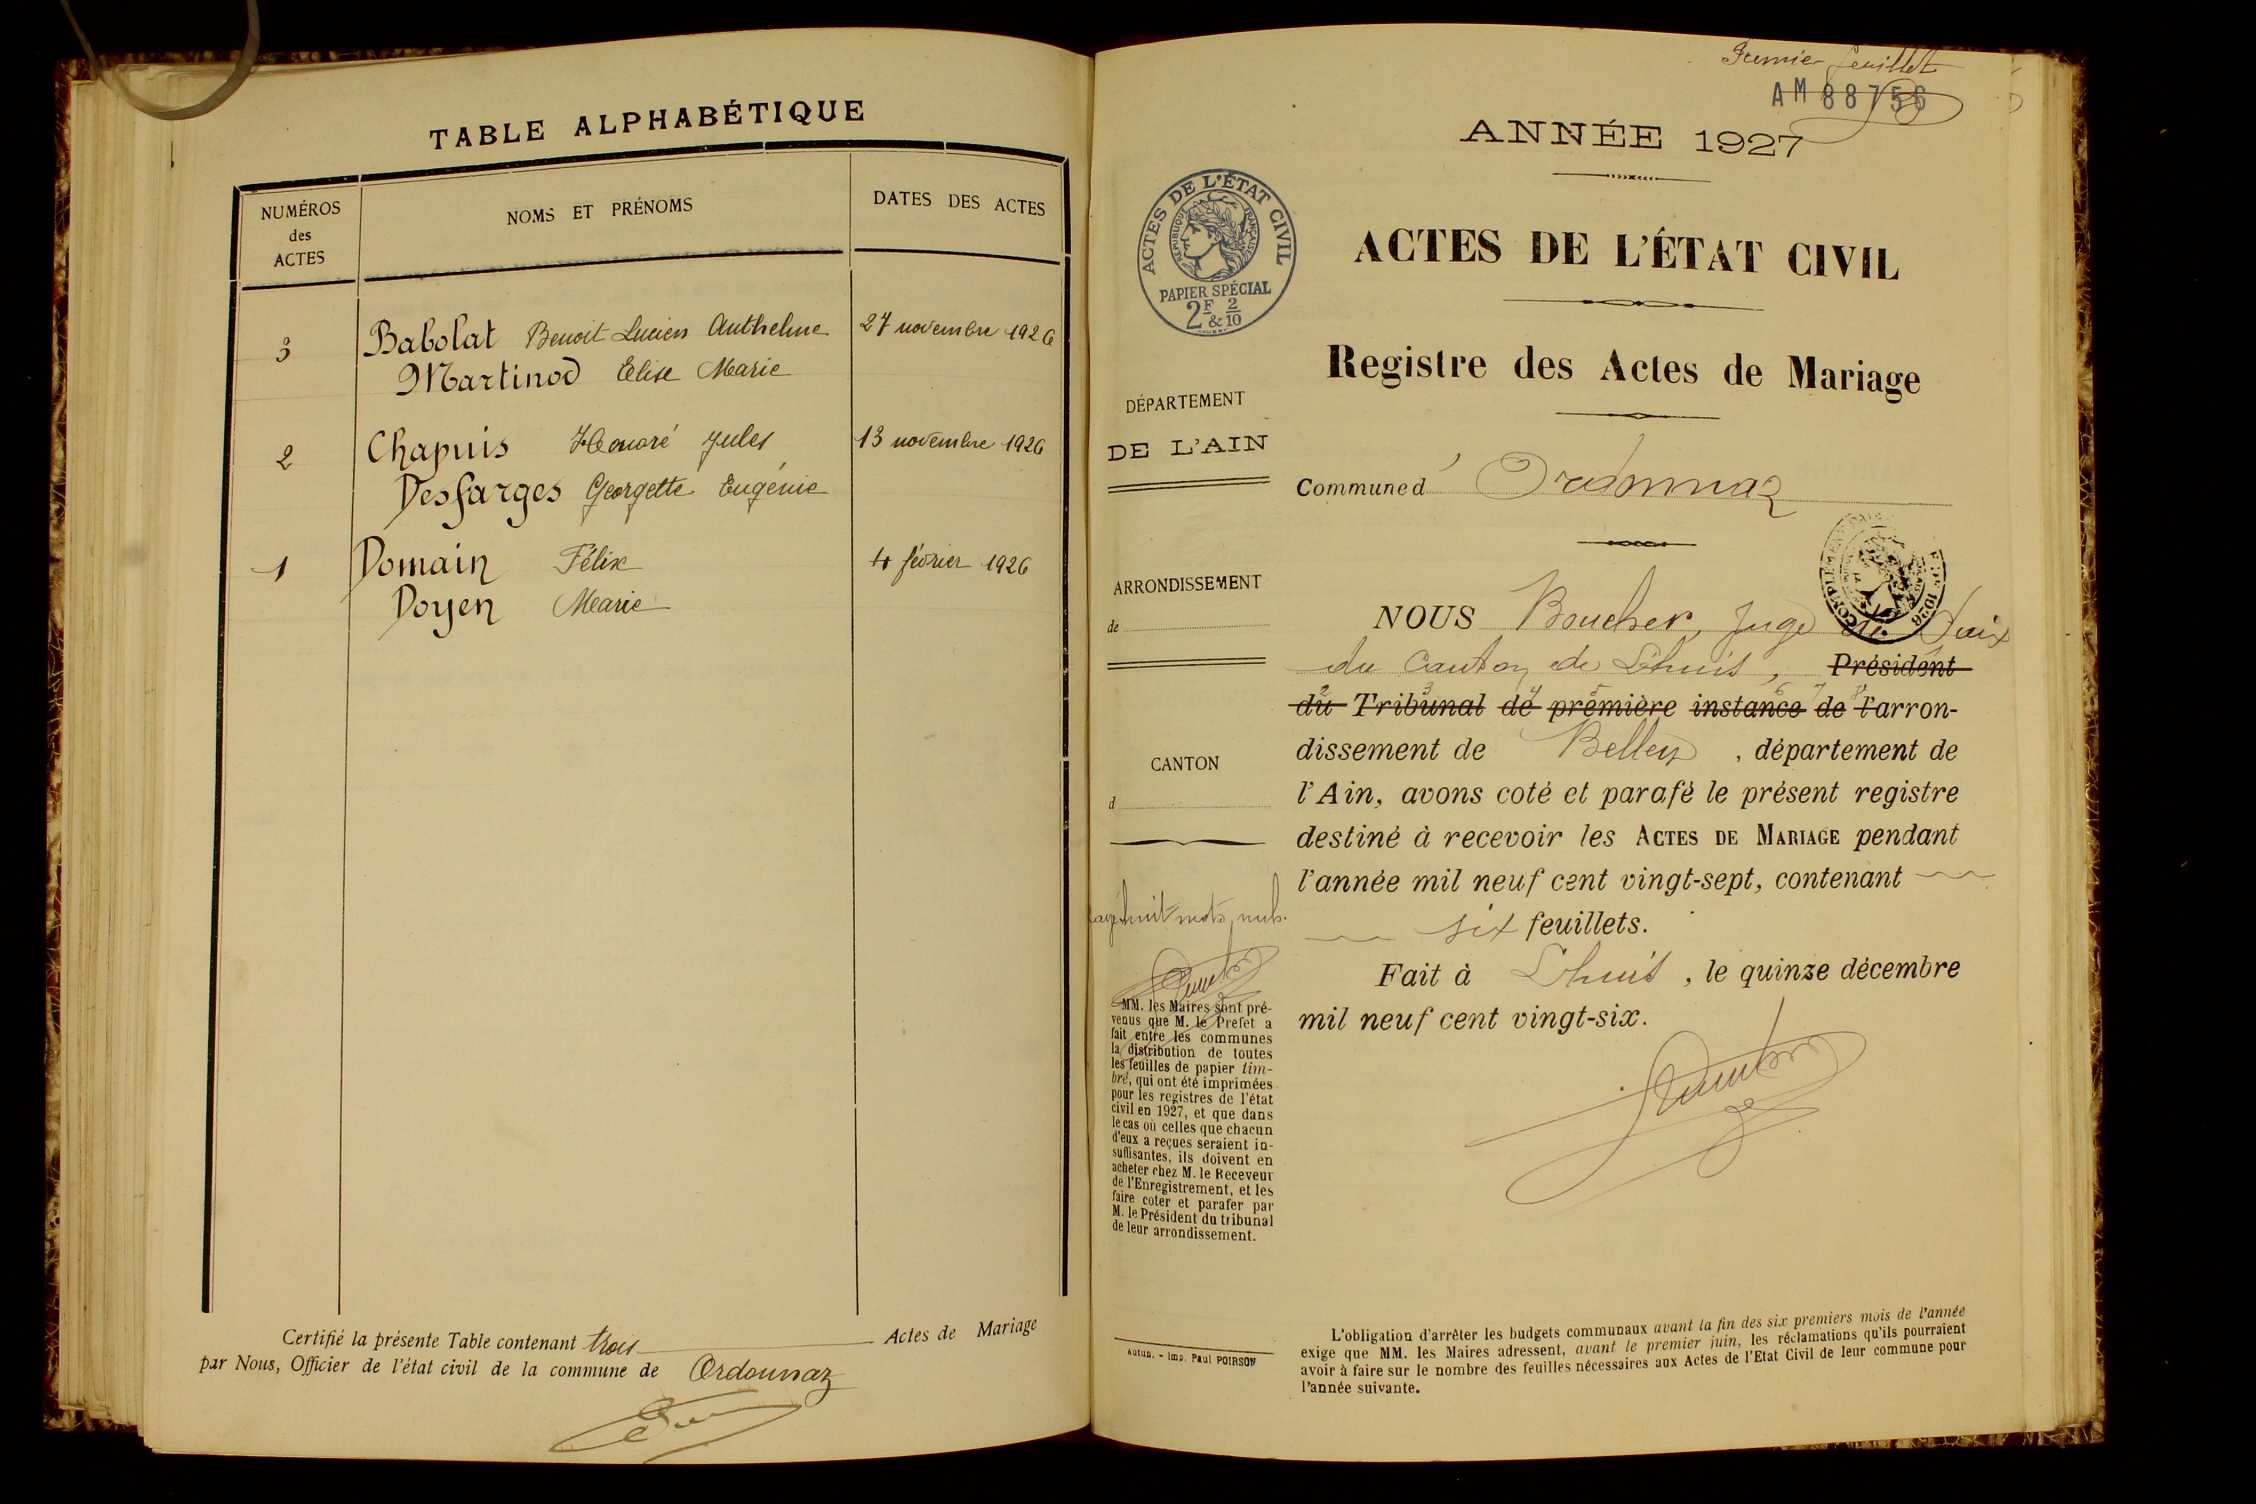 TABLE ALPHABÉTIQUE
NUMÉROS
des
ACTES
NOMS ET PRÉNOMS
DATES DES ACTES
3 Babolat Benoit Lucien Anthelme 27 novembre 1926
Martinod Elise Marie
2 Chapuis Honoré Jules 13 novembre 1926
Desfarges Georgette Eugénie
1 Domain Félix 4 février 1926
Doyen Marie
Certifié la présente Table contenant trois Actes de Mariage
par Nous, Officier de l'état civil de la commune de Ordonnaz
Premier feuillet
AM 88756
ANNÉE 1927
ACTES DE L'ÉTAT CIVIL
RÉPUBLIQUE FRANÇAISE
PAPIER SPÉCIAL
2F & 2/10
ACTES DE L'ÉTAT CIVIL
Registre des Actes de Mariage
DÉPARTEMENT
DE L'AIN
Commune d'Ordonnaz
ARRONDISSEMENT
de
CANTON
d
NOUS Boucher, Juge de Paix
du Canton de Lhuis, Président
du Tribunal de première instance de l'arron-
dissement de Belley, département de
l'Ain, avons coté et parafé le présent registre
destiné à recevoir les ACTES DE MARIAGE pendant
l'année mil neuf cent vingt-sept, contenant
six feuillets.
Fait à Lhuis, le quinze décembre
mil neuf cent vingt-six.
huit mots nuls.
MM. les Maires sont pré-
venus que M. le Préfet a
fait entre les communes
la distribution de toutes
les feuilles de papier tim-
bré, qui ont été imprimées
pour les registres de l'état
civil en 1927, et que dans
le cas où celles que chacun
d'eux a reçues seraient in-
suffisantes, ils doivent en
acheter chez M. le Receveur
de l'Enregistrement, et les
faire coter et parafer par
M. le Président du tribunal
de leur arrondissement.
Autun. - Imp. Paul POIRSON
L'obligation d'arrêter les budgets communaux avant la fin des six premiers mois de l'année
exige que MM. les Maires adressent, avant le premier juin, les réclamations qu'ils pourraient
avoir à faire sur le nombre des feuilles nécessaires aux Actes de l'Etat Civil de leur commune pour
l'année suivante.